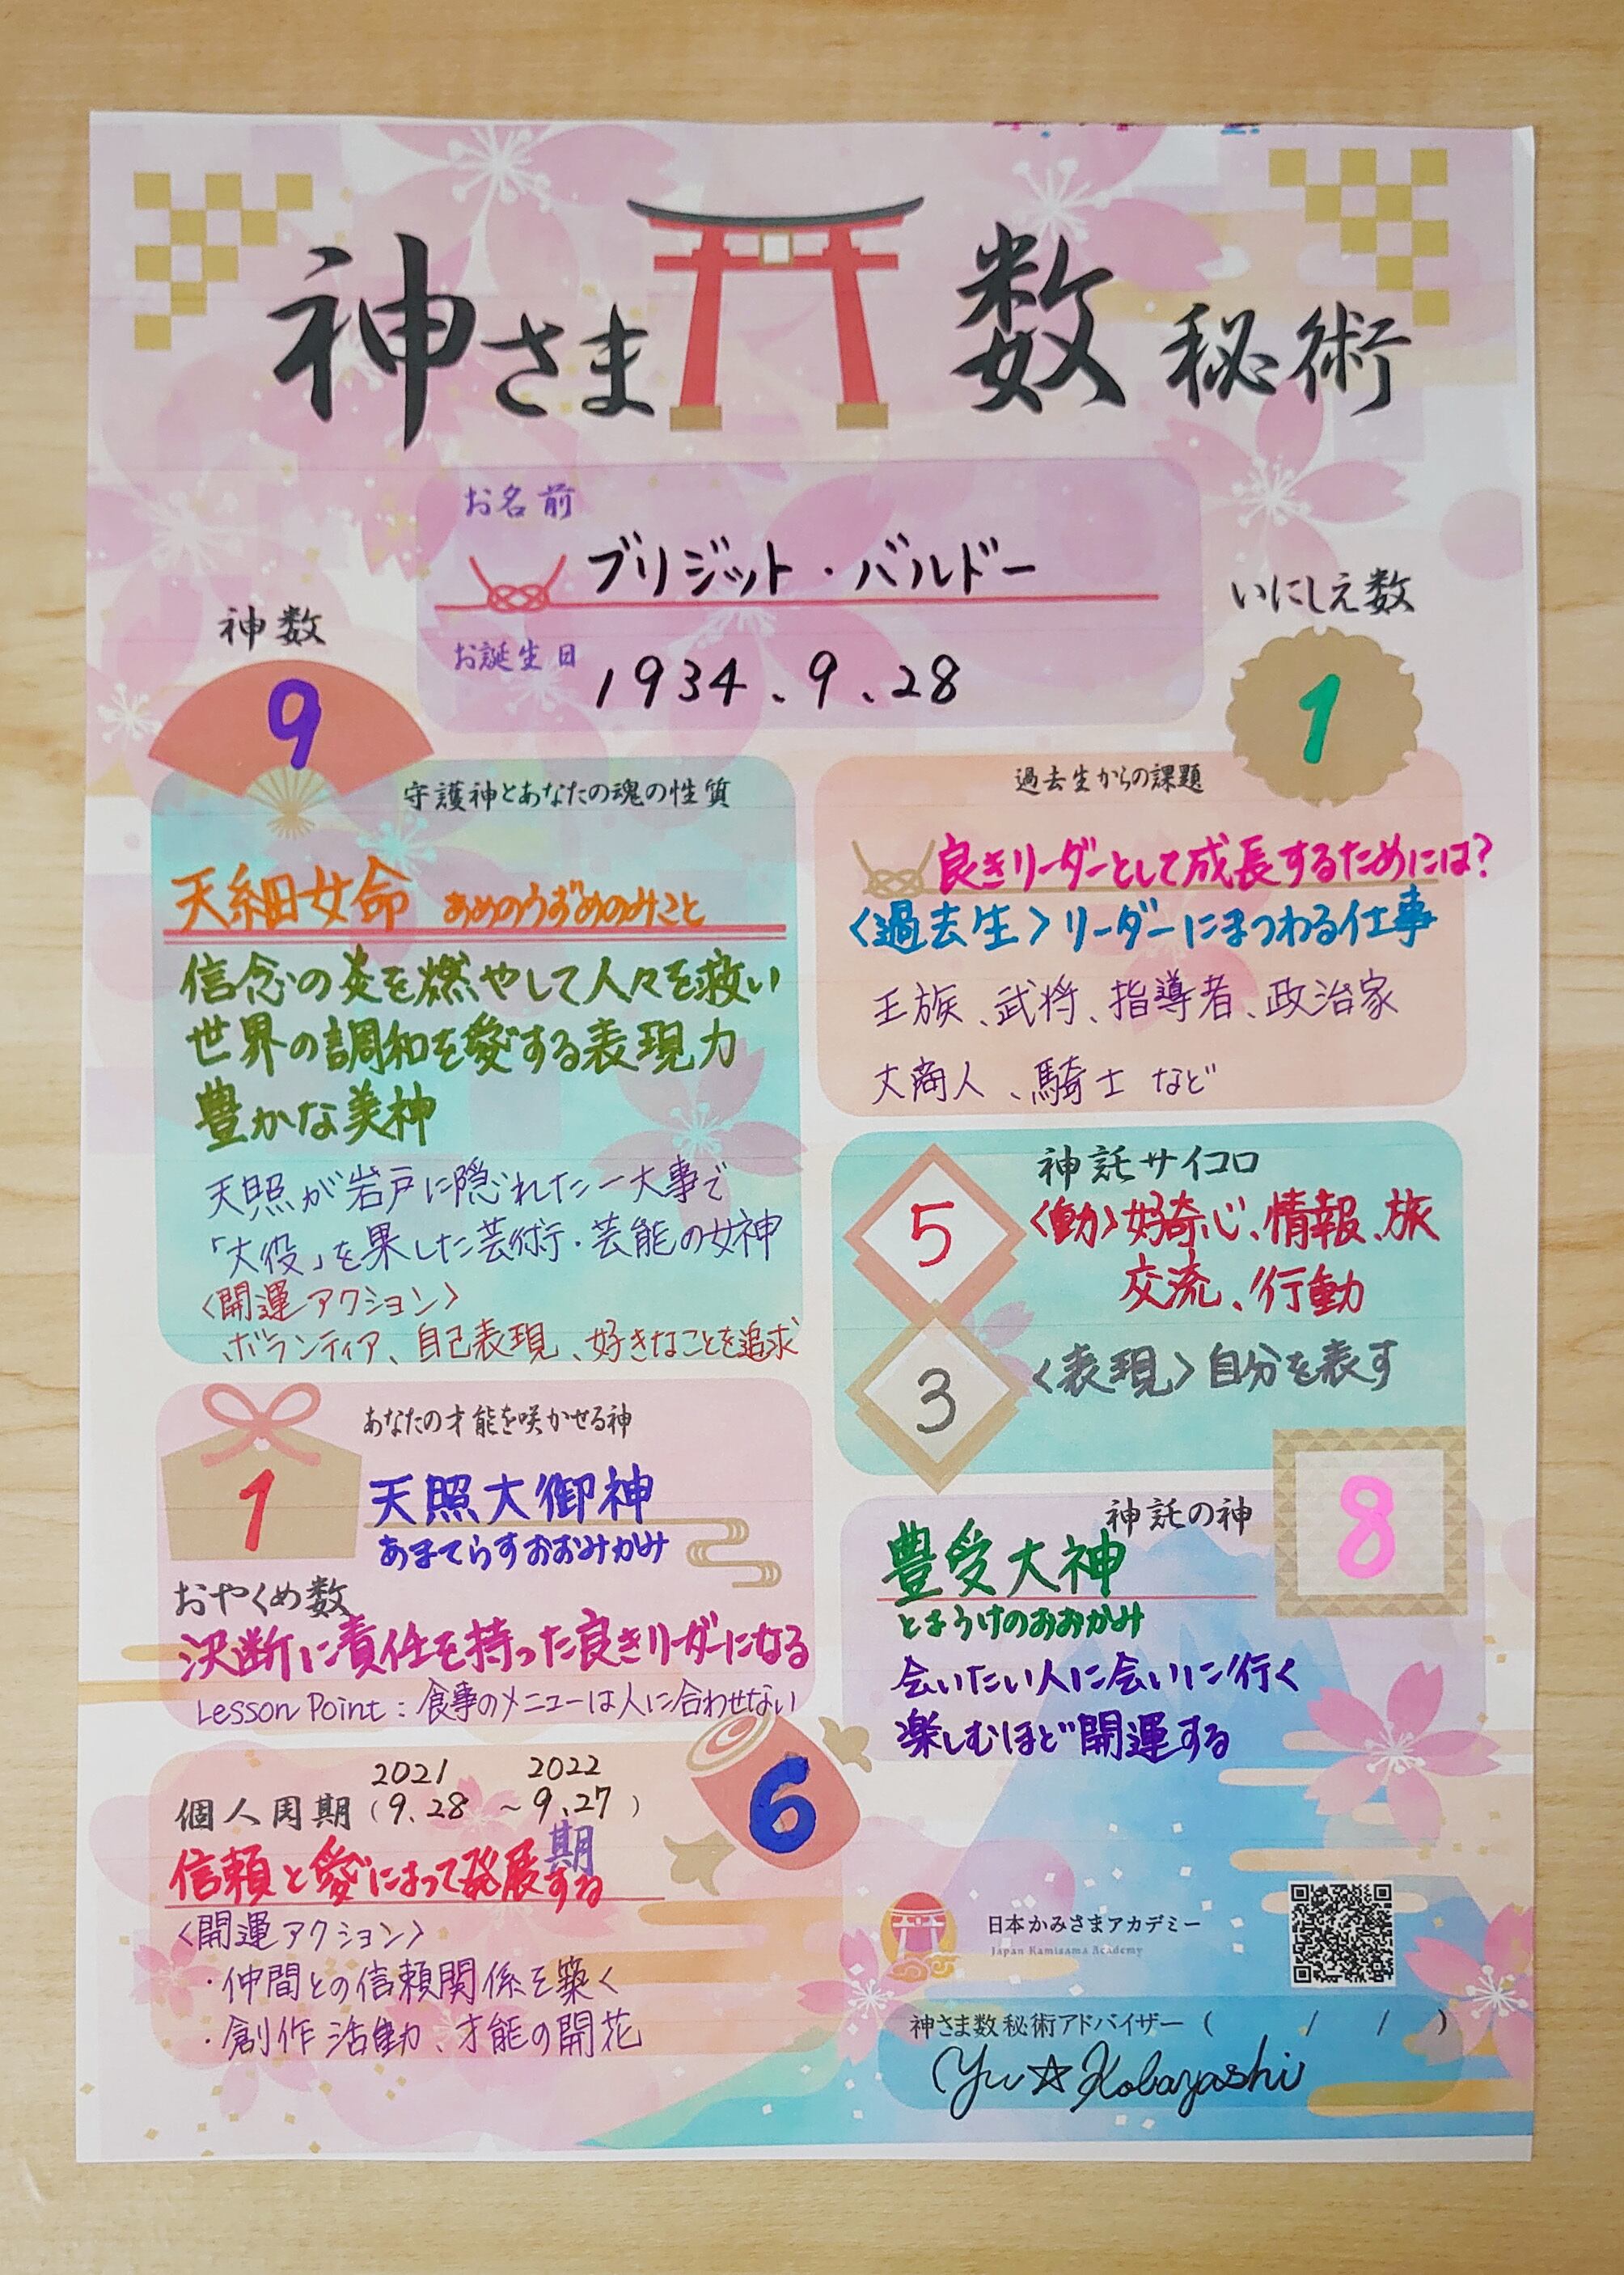 神さま 数秘術
お名前
ブリジット・バルドー
お誕生日
1934、9、28
神数
9
いにしえ数
1
守護神とあなたの魂の性質
天細女命 あめのうずめのみこと
信念の炎を燃やして人々を救い
世界の調和を愛する表現力
豊かな美神
天照が岩戸に隠れた一大事で
「大役」を果した芸術・芸能の女神
〈開運アクション〉
ボランティア、自己表現、好きなことを追求
過去生からの課題
良きリーダーとして成長するためには?
〈過去生〉リーダーにまつわる仕事
王族、武将、指導者、政治家
大商人、騎士 など
神託サイコロ
5
〈動〉好奇心、情報、旅
交流、行動
3
〈表現〉自分を表す
あなたの才能を咲かせる神
1
天照大御神
あまてらすおおみかみ
おやくめ数
決断に責任を持った良きリーダーになる
Lesson Point : 食事のメニューは人に合わせない
神託の神
8
豊受大神
とようけのおおかみ
会いたい人に会いに行く
楽しむほど開運する
2021 2022
個人周期(9.28 ~9.27)
6
期
信頼と愛によって発展する
〈開運アクション〉
・仲間との信頼関係を築く
・創作活動、才能の開花
日本かみさまアカデミー
Japan Kamisama Academy
神さま数秘術アドバイザー ( / / )
Yu☆Kobayashi